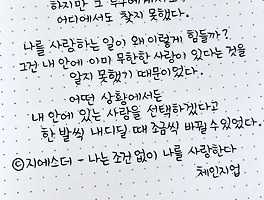 하지만 그 누구에게서도
어디에서도 찾지 못했다.
나를 사랑하는 일이 왜 이렇게 힘들까?
그건 내 안에 이미 무한한 사랑이 있다는 것을
알지 못했기 때문이었다.
어떤 상황에서든
내 안에 있는 사랑을 선택하겠다고
한 발씩 내디딜 때 조금씩 바뀔 수 있었다.
ⓒ지에스더 - 나는 조건 없이 나를 사랑한다
체인지업